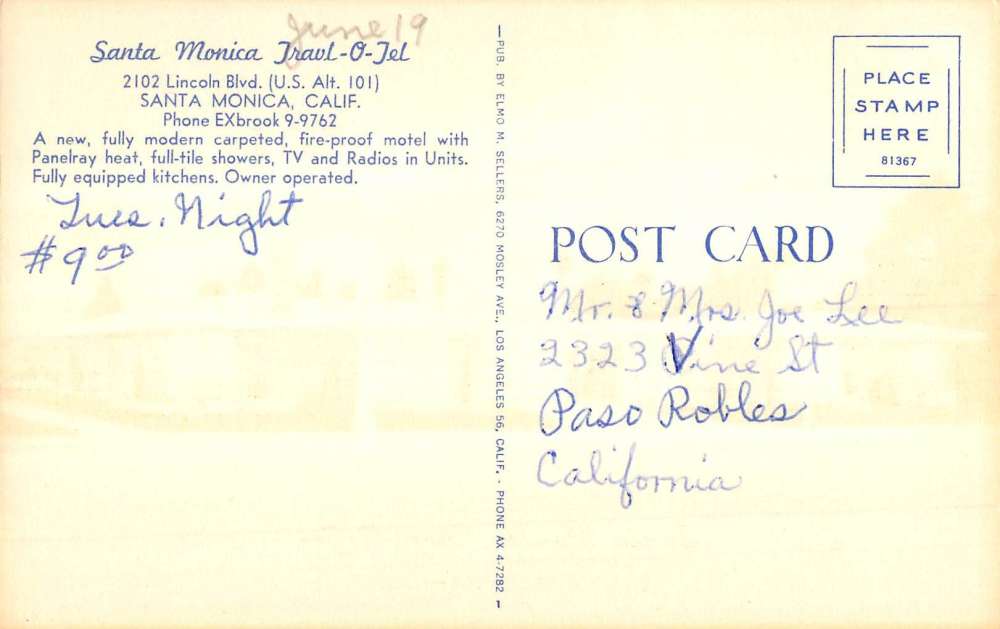 June 19
Santa Monica Travl-O-Tel
2102 Lincoln Blvd. (U.S. Alt. 101)
SANTA MONICA, CALIF.
Phone EXbrook 9-9762
A new, fully modern carpeted, fire-proof motel with
Panelray heat, full-tile showers, TV and Radios in Units.
Fully equipped kitchens. Owner operated.
Tues. Night
#9 00
PUB. BY ELMO M. SELLERS, 6270 MOSLEY AVE., LOS ANGELES 56, CALIF. - PHONE AX 4-7282 1
PLACE
STAMP
HERE
81367
POST CARD
Mr. & Mrs. Joe Lee
2323 Vine St
Paso Robles
California